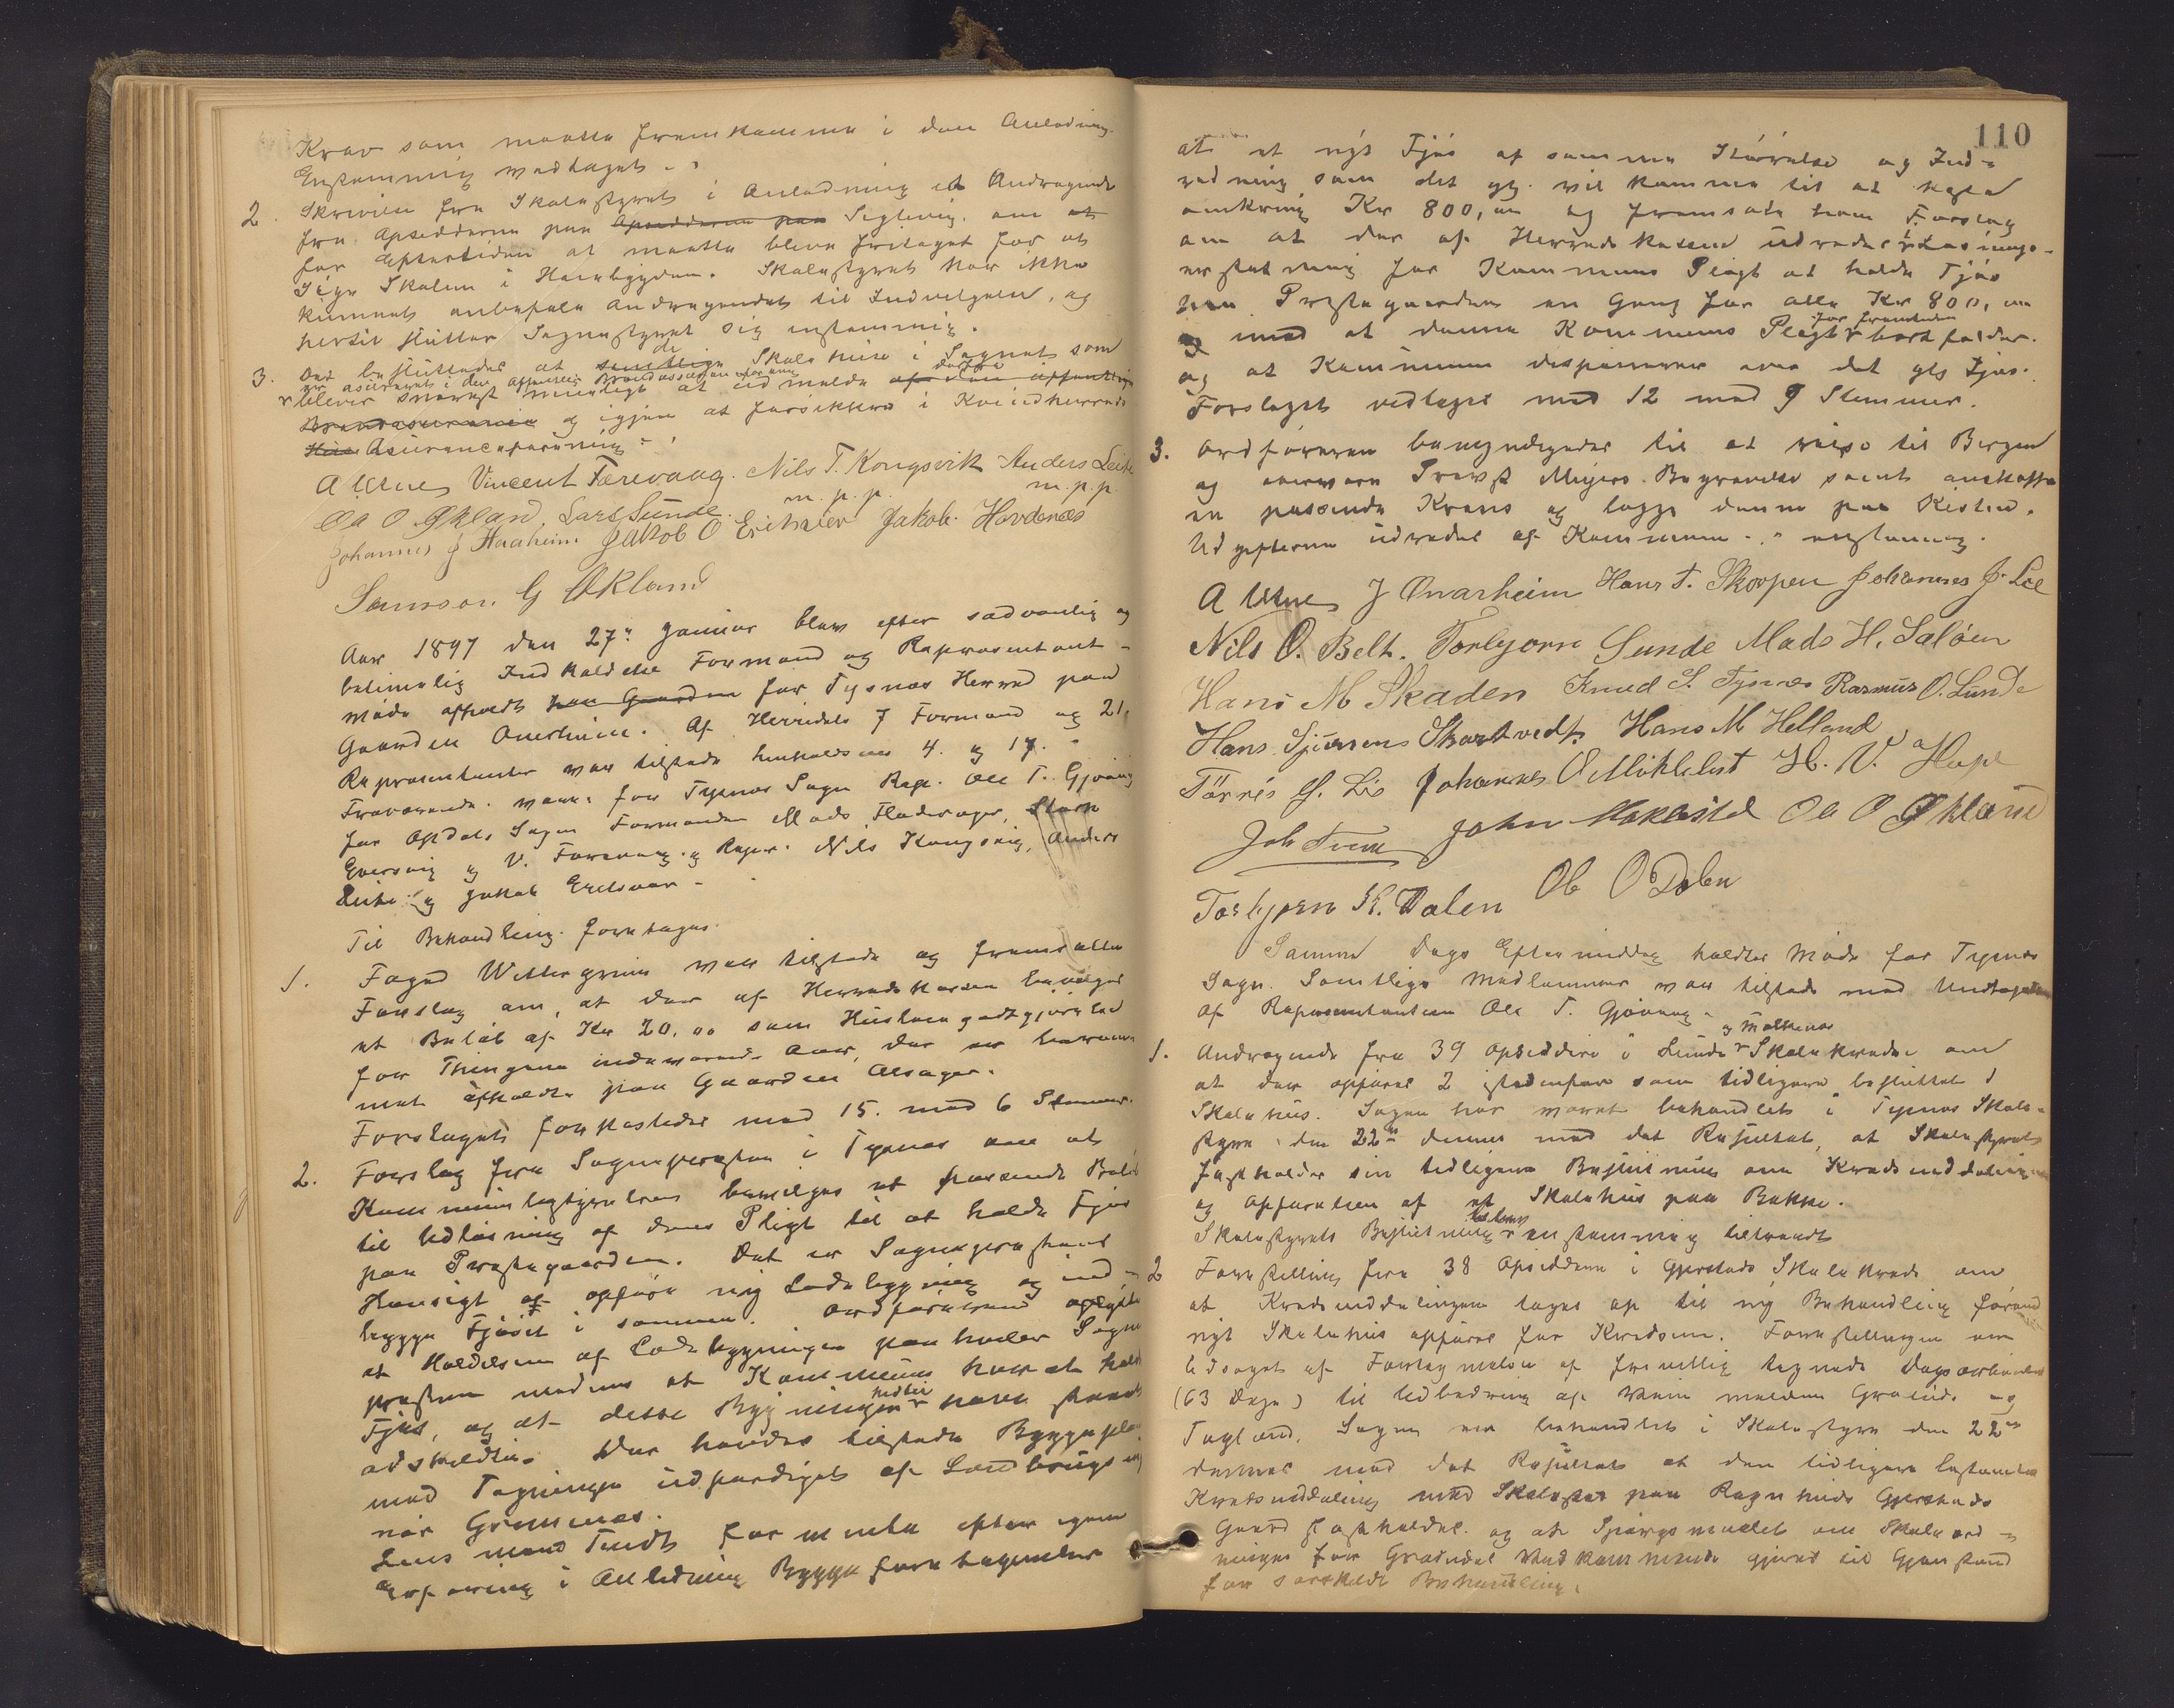 Krav som maatte fremkomme i den Anledning.
Enstemmig vedtaget.
2. Skrivelse fra Skolestyret i Anledning et Andragende
fra Opsidderne paa Opsidderne paa Siglevig. om at
for Eftertiden at maatte blive fritaget for at
Skolen i Heiebygden. Skolestyret har ikke
kunnet anbefale Andragendet til Indvilgelse, og
hertil slutter Sognestyret sig enstemmig.
de
3. Det besluttedes at samtlige Skolehuse i Sognet som
er asureret i den offentlige Brandassuranceforening
blever snarest mueligt at udmelde af den offentlige
Brandasurance og igjen at forsikkre i Kvindherreds
Asuranceforening.
A Uttne Vincent Færevaag. Nils T. Kongsvik Anders Leite
m. p. p. m. p. p.
Ola O Økland, Lars Sunde.
Johannes J Haaheim Jakob O Jakob Hovdenæs
Samson G Økland
Aar 1897 den 27de Januar blev efter sædvanlig og
betimelig Indkaldelse Formænd og Repræsentant-
møde afholdt paa Gaarden for Tysnæs Herred paa
Gaarden Onerheim. Af Herredets 7 Formænd og 21
Repræsentanter var tilstede henholdsvis 4. og 17.
Fraværende. være. for Tysnæs Sogn Rep. Ole T. Gjøvaag
for Opdals Sogn Formanden Mads Flaterager,
og V. Færevaag. og Repr. Nils Kongsvig, Anders
Leite og Jakob
Til Behandling foretages.
1. Foged Wettergreen var tilstede og fremsatte
Forslag om, at der af Herredskassen bevilges
et Beløb af Kr 20,00 som Husleiegodtgjørelse
for Thingene indeværende Aar, der er berammet
afholdte paa Gaarden Alsager.
Forslaget forkastedes med 15. mod 6 Stemmer.
2. Forslag fra Sognepresten i Tysnæs om at
Kommunebestyrelsen bevilges et passende Beløb
til Udløsning af dens Pligt til at holde Fjøs
paa Præstegaarden. Det er Sogneprestens
Hensigt at opføre ny Ladebygning og ind-
bygge Fjøset i sammen. Ordføreren oplyste
at Holdelsen af Ladebygningen paa hviler Sogne
presten medens at Kommunen har at holde
Fjøs, og at disse Bygninger hidtil have staaet
adskildte. Der havdes tilstede Byggeplan
med Tegninger udfærdiget af Landbrugsinge
niør Grimnæs.
Lensmand Tveit for meente efter egen
erfaring i Anledning Byggeforetagender
110
at et nyt Fjøs af samme Størrelse og Ind-
redning som det gl. vil komme til at koste
omkring Kr 800,00 og fremsatte han Forslag
om at der af Herredskassen udredes Løsnings-
erstatning for Kommunens Pligt at holde Fjøs
paa Præstegaarden en Gang for alle Kr 800,00
for fremtiden
og med at denne Kommunens Pligt bortfalder.
og at Kommunen disponerer over det gle Fjøs.
Forslaget vedtaget med 12 mod 9 Stemmer.
3. Ordføreren bemyndigedes til at reise til Bergen
og overvære Provst Meyers. Begravelse samt anskaffe
en passende Krans og lægge denne paa Kisten.
Udgifterne udredes af Kommunen. enstemmig.
A Uttne J Onarheim Hans T. Skorpen Johannes J. Lie
Nils O. Belt. Torbjørn Sunde Mads H. Saløen
Hans M Skaden Knud S. Tysnæs Rasmus O. Lunde
Hans Sjursens Skartvedt. Hans M Helland
Tørres H. Lie Johannes O Miklebst H. N. Hope
Joh Tveit John Ola O Økland
Torbjørn K. Dalen Ole O Dalen
Samme Dags Eftermiddag holdtes Møde for Tysnæs
Sogn. Samtlige Medlemmer var tilstede med Undtagelse
af Representanten Ole T. Gjøvaag
1. Andragende fra 39 Opsiddere i Lunde og Malkenæs Skolekredse om
at der opføres 2 istedenfor som tidligere besluttet 1
Skolehus. Sagen har været behandlet i Tysnæs Skole-
styre den 22de dennes med det Resultat, at Skolestyret
fastholder sin tidligere Beslutning om Kredsinddeling
og Opførelsen af et Skolehus paa Bakke.
Skolestyrets Beslutning blev enstemmig tiltraadt
2 Forestilling fra 38 Opsiddere i Gjerstads Skolekreds om
at Kredsinddelingen tages op til ny Behandling førend
nyt Skolehus opføres for Kredsen. Forestillingen var
ledsaget af Fortegnelse af frivillig tegnede Dagsarbeider
(63 Dage) til Udbedring af Veien mellem og
Sagen var behandlet i Skolestyre den 22de
dennes med det Resultat at den tidligere bestemte
Kredsinddeling med Skolested paa Ragnhilds Gjerstads
Gaard fastholdes. og at Spørgsmaalet om Skoleord-
ningen for vedkommende gjøres til Gjenstand
for særskildt Behandling.